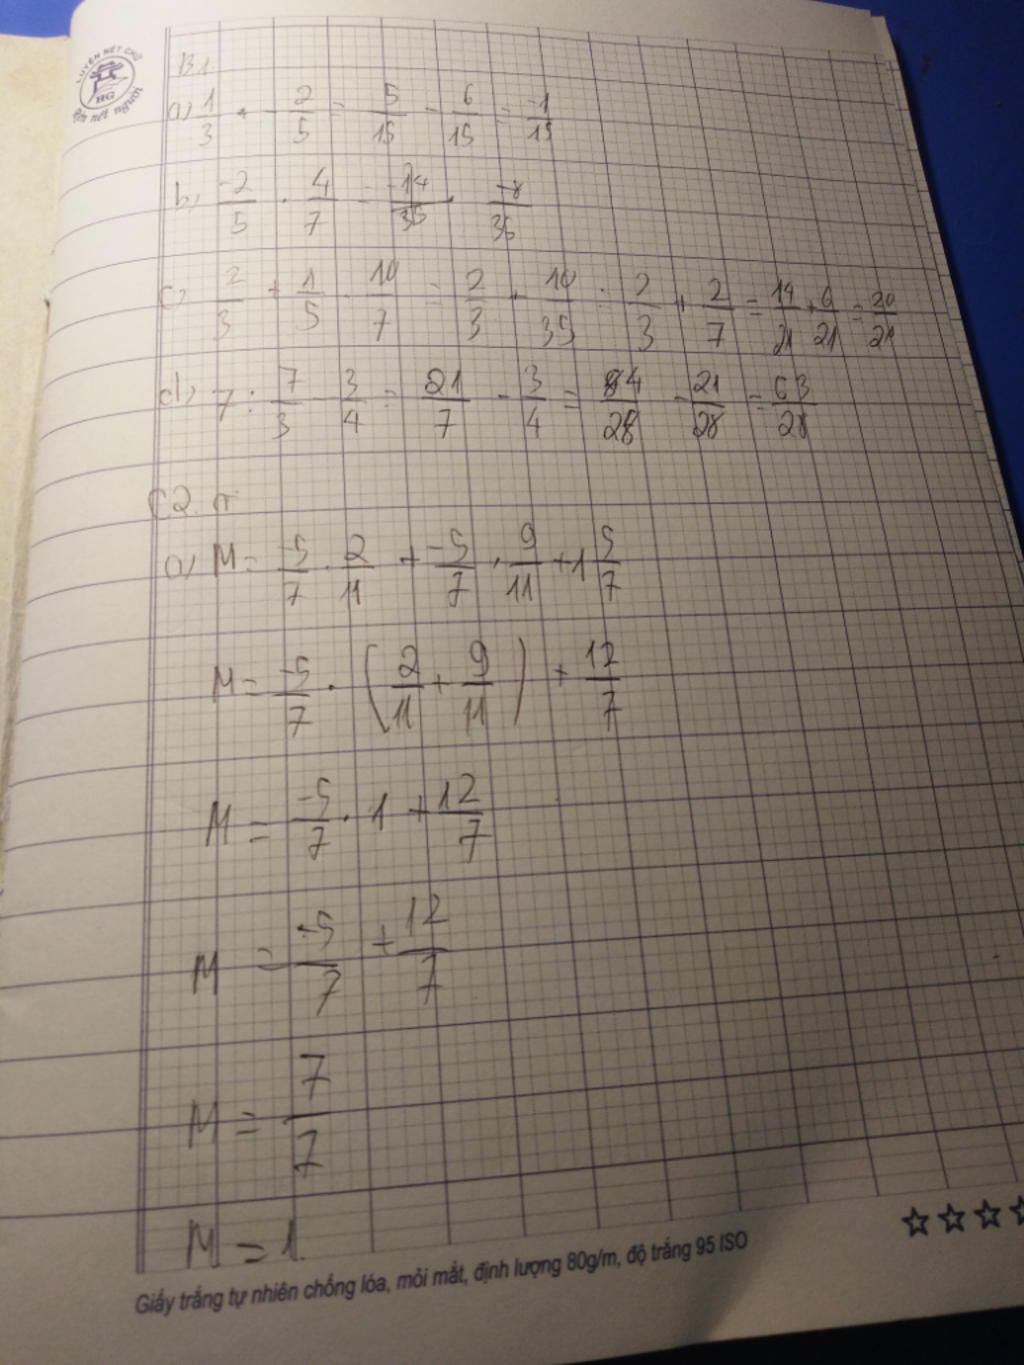 LUYỆN NÉT CHỮ
HG
Rèn nết người
B1
a) 1/3 + -2/5 = 5/15 - 6/15 = -1/15
b) -2/5 . 4/7 = -8/35
c) 2/3 + 1/5 . 10/7 = 2/3 + 10/35 = 2/3 + 2/7 = 14/21 + 6/21 = 20/21
d) 7 : 7/3 - 3/4 = 21/7 - 3/4 = 84/28 - 21/28 = 63/28
C2.
a) M = -5/7 . 2/11 + -5/7 . 9/11 + 1 5/7
M = -5/7 . (2/11 + 9/11) + 12/7
M = -5/7 . 1 + 12/7
M = -5/7 + 12/7
M = 7/7
M = 1.
Giấy trắng tự nhiên chống lóa, mỏi mắt, định lượng 80g/m, độ trắng 95 ISO